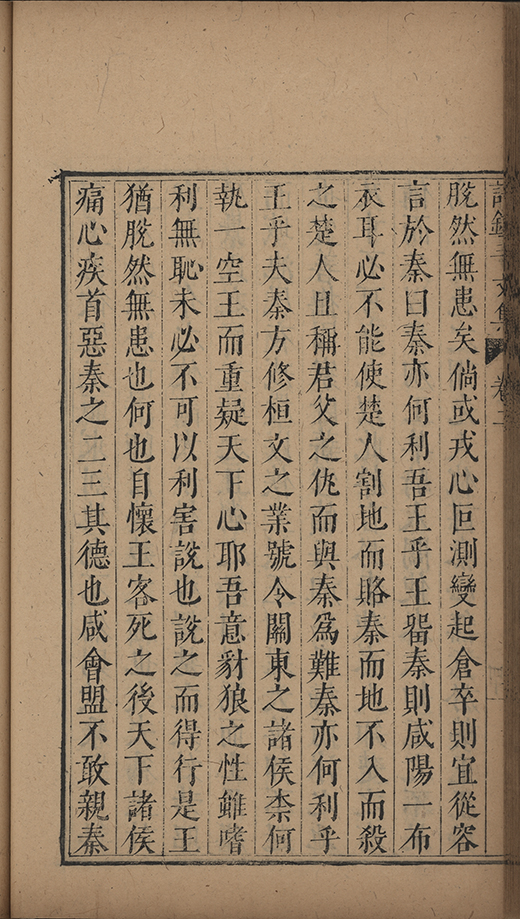 許鍾斗文集 卷二
脫然無患矣倘或戎心叵測變起倉卒則宜從容
言於秦曰秦亦何利吾王乎王畱秦則咸陽一布
衣耳必不能使楚人割地而賂秦而地不入而殺
之楚人且稱君父之仇而與秦爲難秦亦何利乎
王乎夫秦方修桓文之業號令關東之諸侯柰何
執一空王而重疑天下心耶吾意豺狼之性雖嗜
利無恥未必不可以利害說也說之而得行是王
猶脫然無患也何也自懷王客死之後天下諸侯
痛心疾首惡秦之二三其德也咸會盟不敢親秦